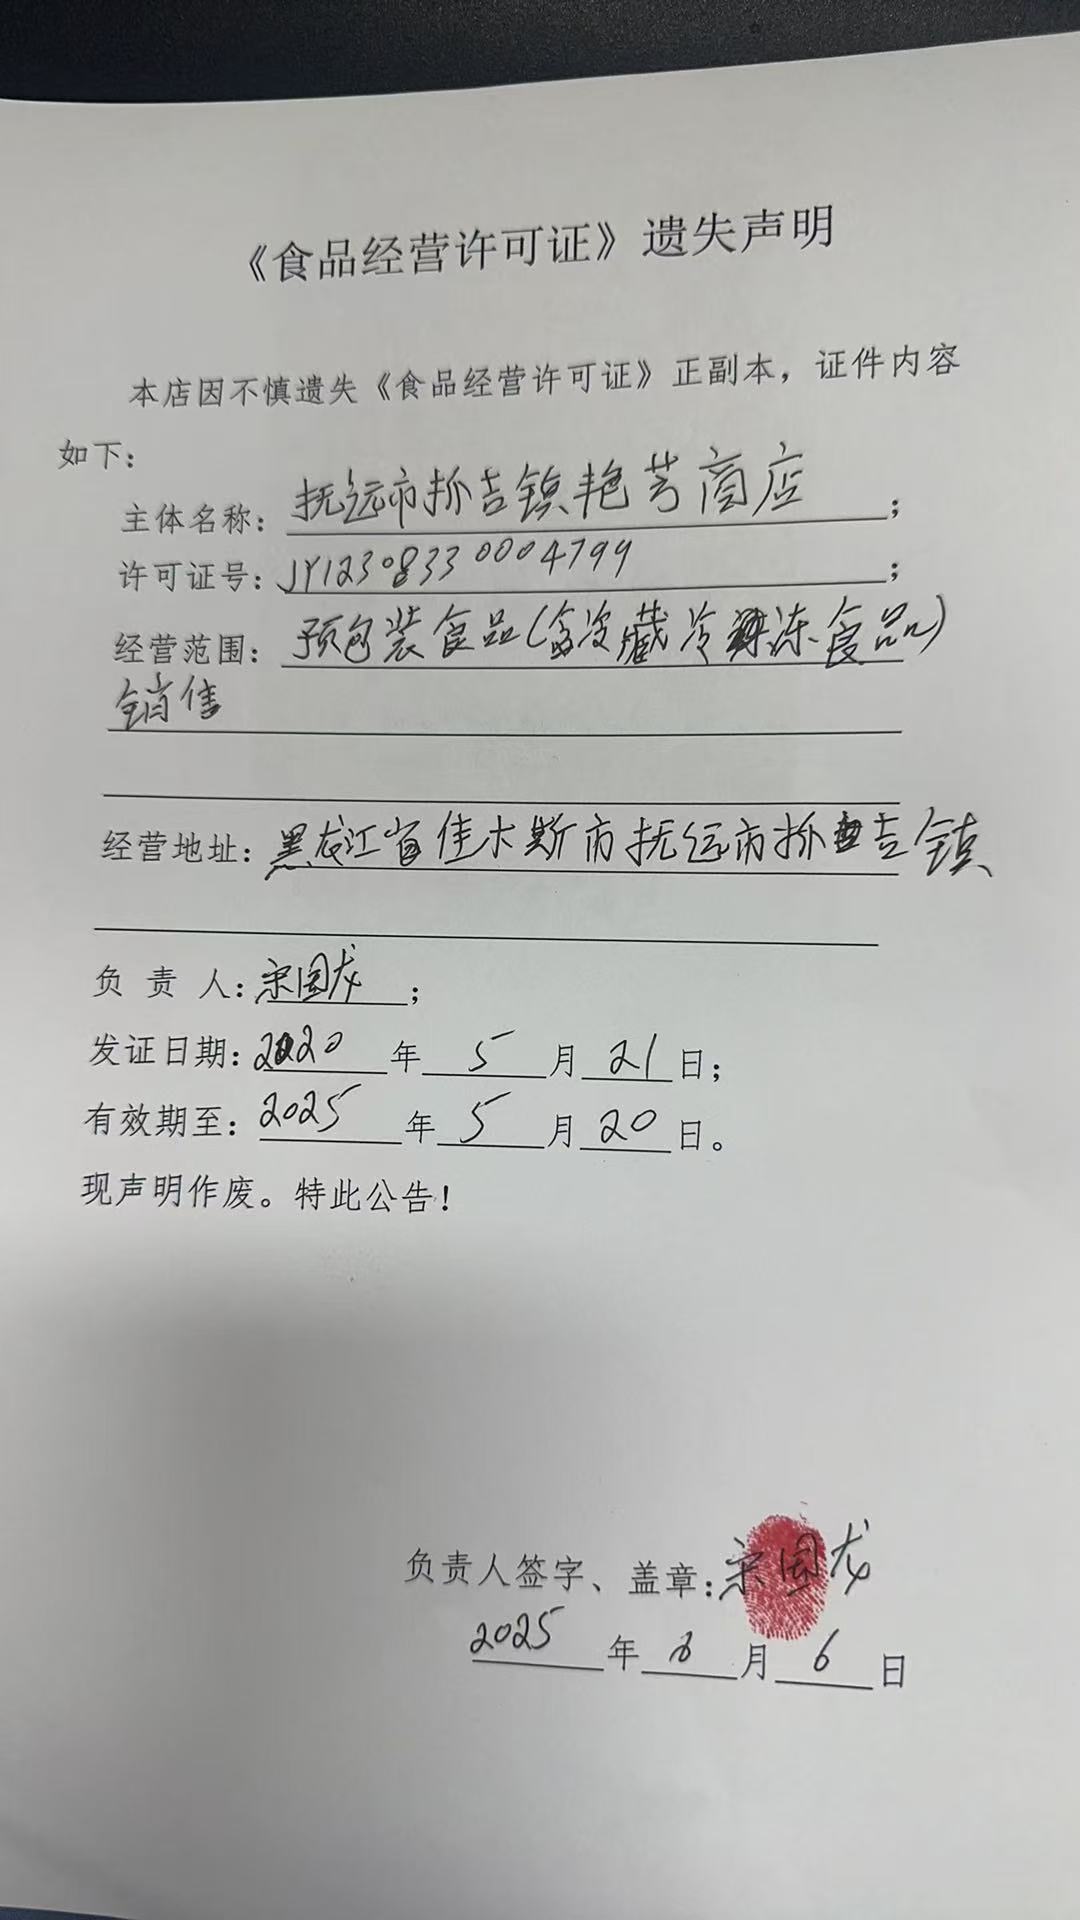 《食品经营许可证》遗失声明
本店因不慎遗失《食品经营许可证》正副本，证件内容
如下：
主体名称：抚远市抓吉镇艳芳商店；
许可证号：JY12308330004799；
经营范围：预包装食品(含冷藏冷冻食品)
销售
经营地址：黑龙江省佳木斯市抚远市抓吉镇
负 责 人：宋国龙；
发证日期：2020年5月21日；
有效期至：2025年5月20日。
现声明作废。特此公告！
负责人签字、盖章：宋国龙
2025年6月6日